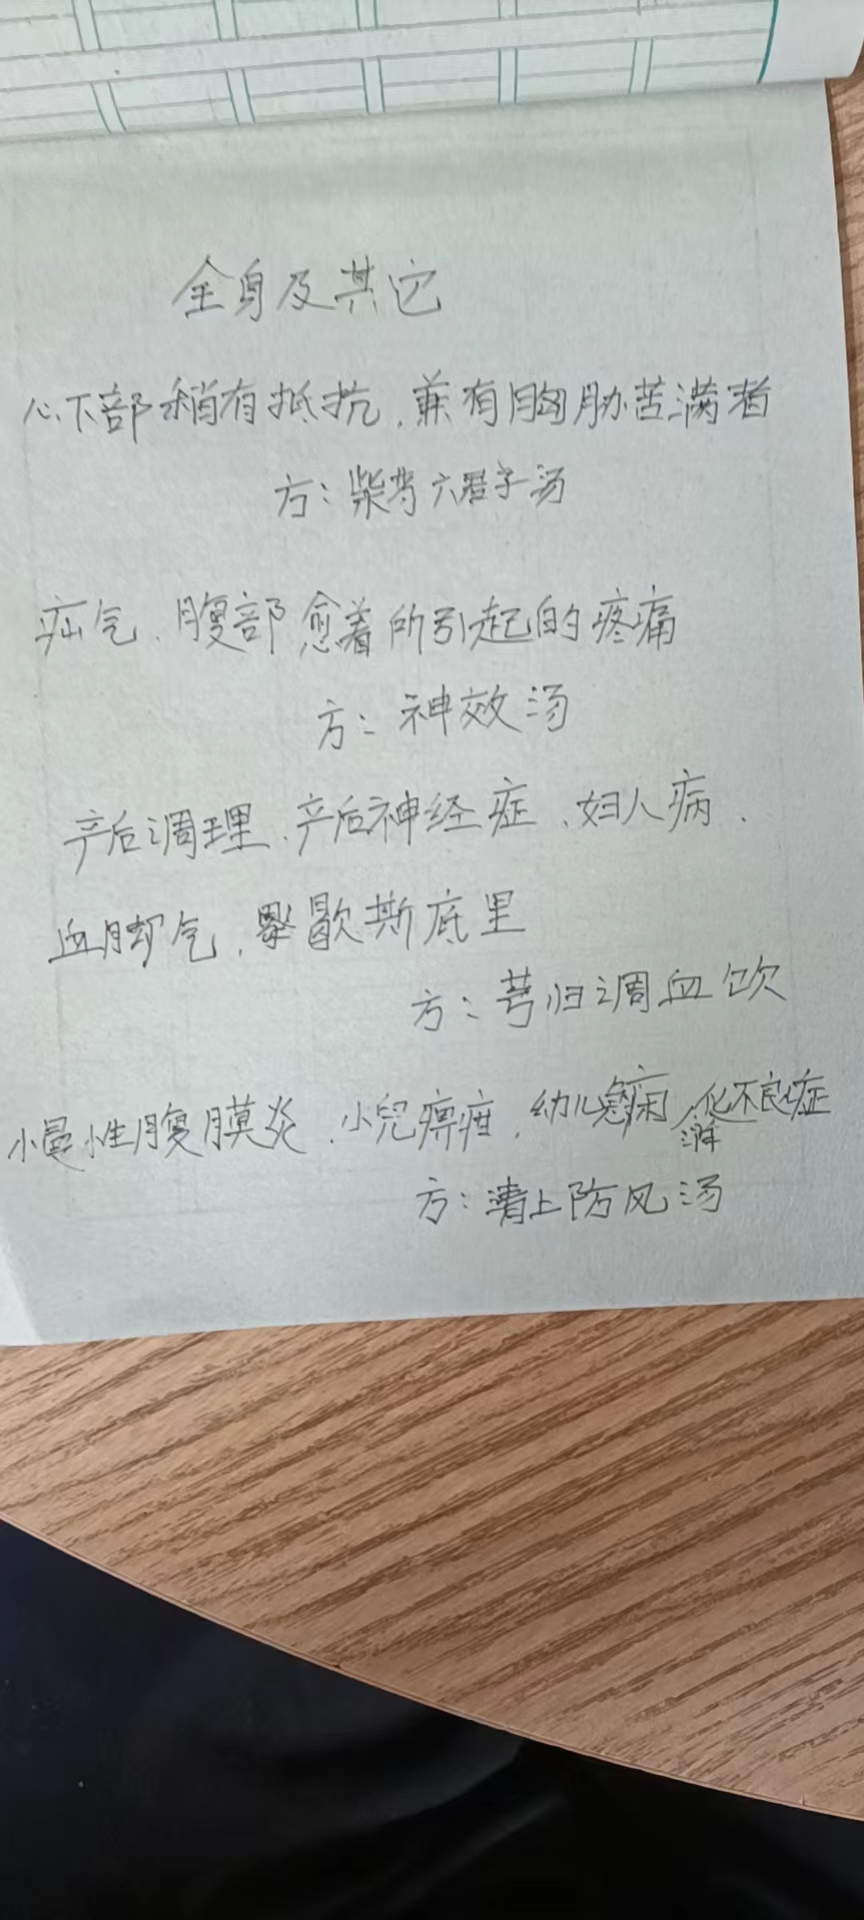 全身及其它
心下部稍有抵抗，兼有胸胁苦满者
方：柴芍六君子汤
疝气、腹部愈着所引起的疼痛
方：神效汤
产后调理、产后神经症、妇人病、
血脚气、歇斯底里
方：芎归调血饮
慢性腹膜炎、小兒痹疳、幼儿消化不良症
方：清上防风汤